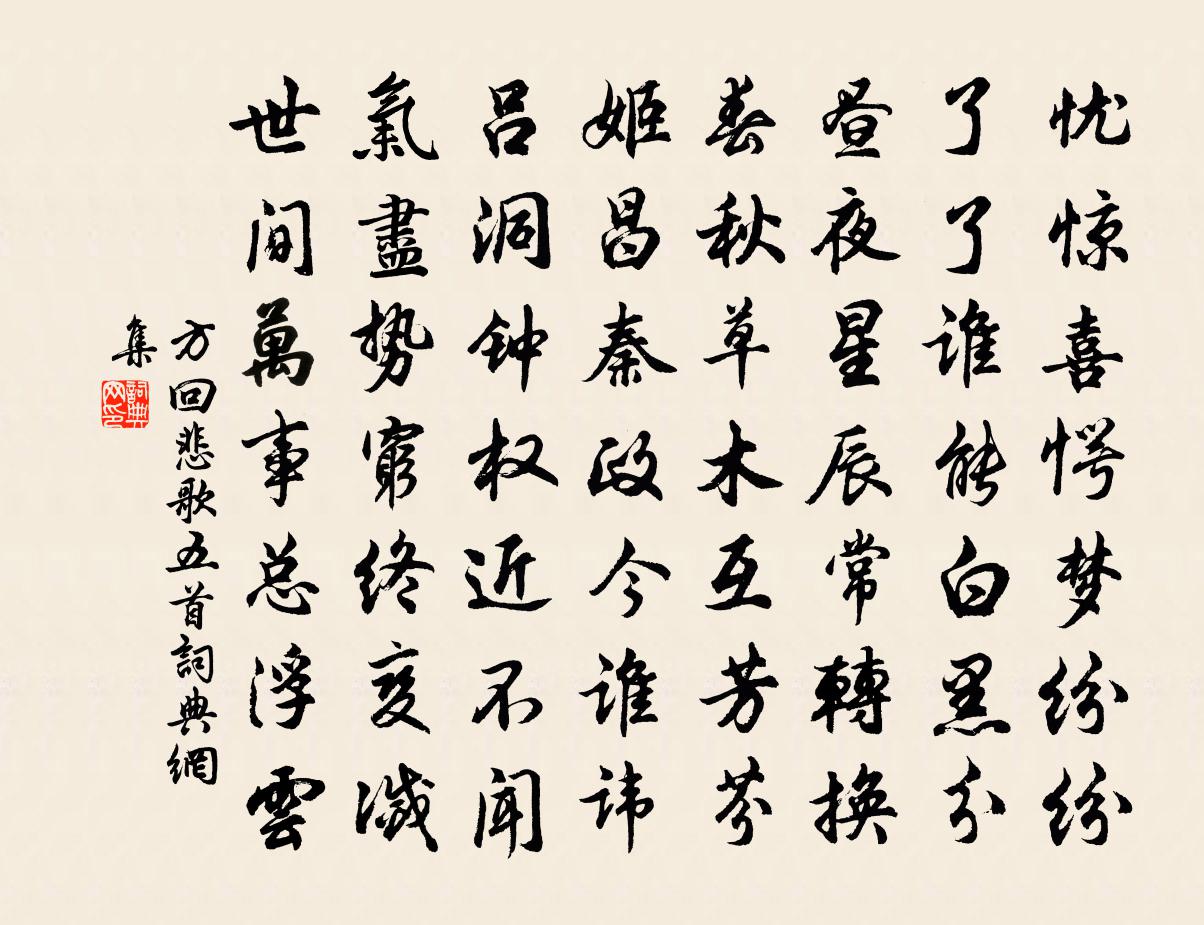 忧惊喜愕梦纷纷
了了谁能白黑分
昼夜星辰常轉换
春秋草木互芳芬
姬昌秦政今谁讳
吕洞钟权近不闻
氣盡势窮终变滅
世间萬事总浮雲
方回悲歌五首詞典網
集
詞典网印